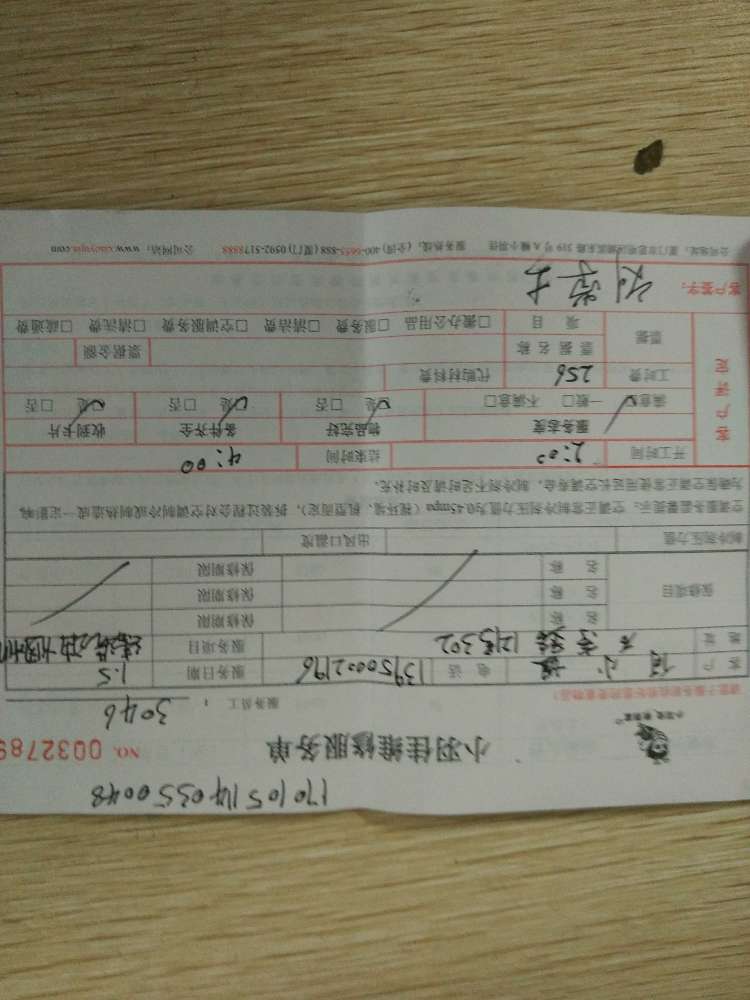 17010514035 0048
小羽佳维修服务单
NO. 0032789
服务员工: 3046
请您于服务前收捡好您的贵重物品!
客户 电话 13950002196 服务日期 1.5
地址 12号302 服务项目 清洗油烟机
保修项目
名称 保修期限
名称 保修期限
名称 保修期限
制冷剂压力值 出风口温度
空调服务温馨提示:空调正常制冷剂压力值为0.45mpa(视环境、机型而定),拆装过程会对空调制冷或制热造成一定影响,
为确保空调正常使用延长空调寿命,制冷剂不足时请及时补充。
客户评定
开工时间 2:00 结束时间 4:00
服务态度 物品完好 备件齐全 收到卡片
满意 一般□ 不满意□ 是 否□ 是 否□ 是 否□
工时费 256 代购材料费
票据 票据名称 票据金额
项目 □微办公用品 □服务费 □清洁费 □空调服务费 □清洗费 □疏通费
客户签字:
公司地址:厦门市思明区湖滨东路319号A幢小羽佳 服务热线:(全国) 400-6655-888 (厦门) 0592-5178888 公司网站:www.xiaoyujia.com